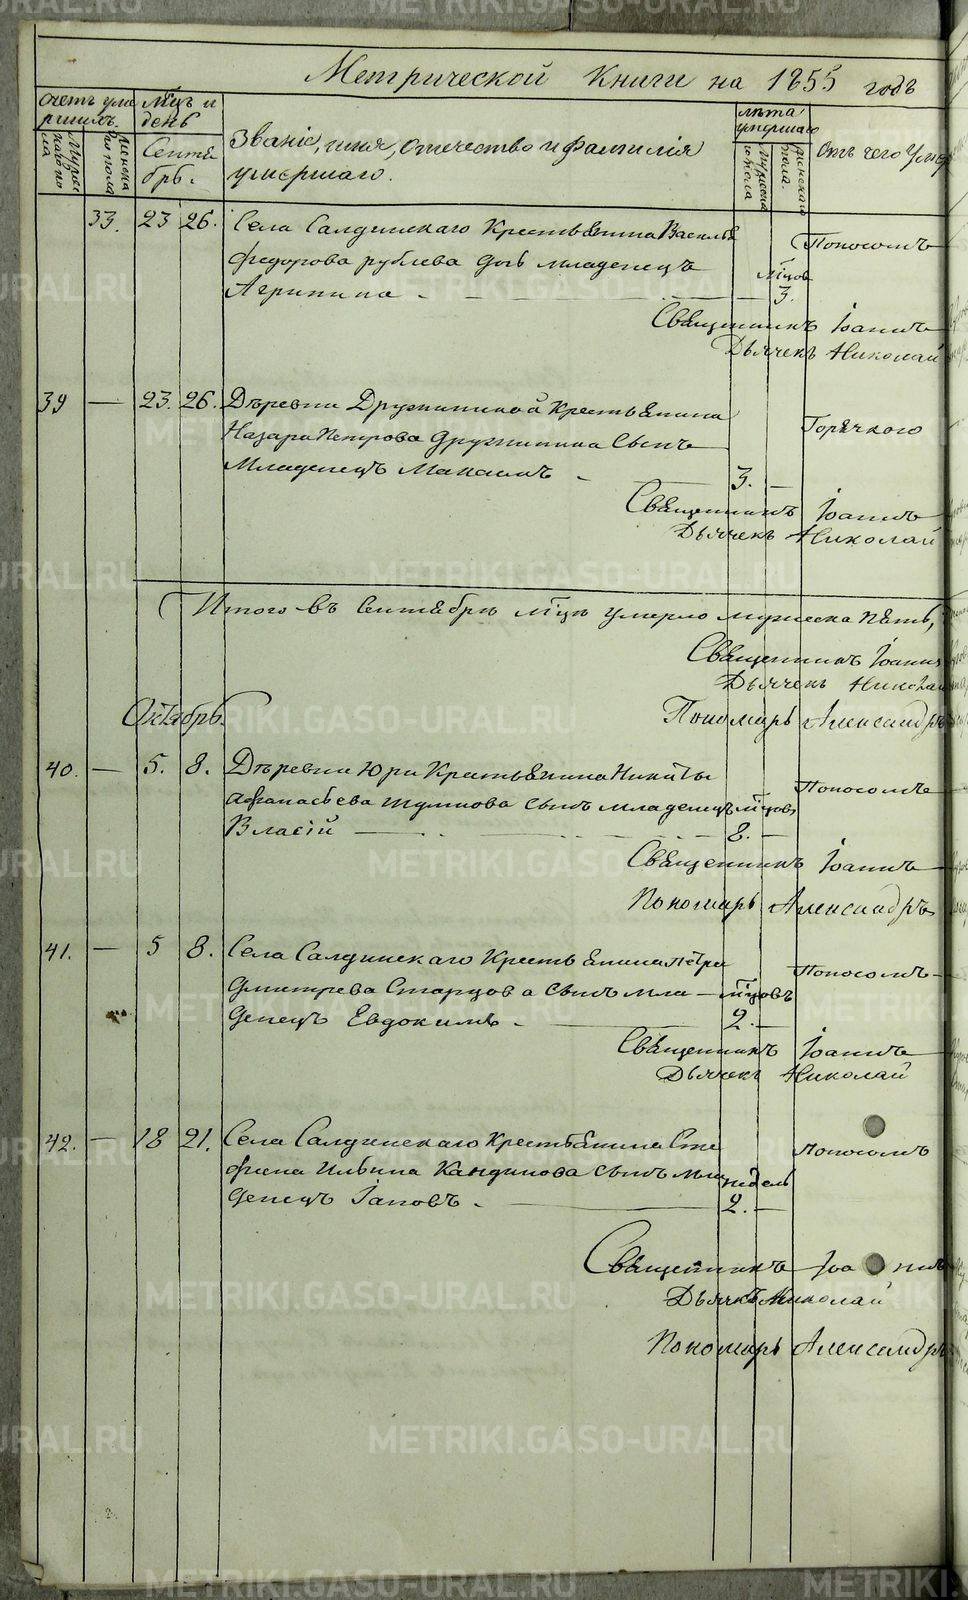 Метрической Книги на 1855 годъ
Счетъ уме
ршихъ.
Мужес
каго по
ла
Женска
го пола
М͠цъ и
день
Сентя
брь.
Званіе, имя, отечество и фамилія
умершаго.
лѣта
умершаго
Мужеска
го пола
Женскаго
пола.
Отъ чего умер
33. 23 26. Села Салдинскаго Крестьянина Василья Поносомъ
Федорова рублева дочь младенецъ м͠цов
Агрипина 3.
Священникъ Іоаннъ
Дьячекъ Николай
39 — 23. 26. Деревни Дружининой Крестьянина Горячкого
Назара Петрова Дружинина Сынъ
Младенецъ Максимъ 3. —
Священникъ Іоаннъ
Дьячекъ Николай
Итого въ Сентябрѣ м͠цѣ умерло мужеска пять,
Священникъ Іоаннъ
Дьячекъ Николай
Октябрь Пономарь Александръ
40. — 5. 8. Деревни Юри Крестьянина Никиты Поносомъ
Афанасьева сынъ младенецъ м͠цовъ
Власій 8. —
Священникъ Іоаннъ
Пономарь Александръ
41. — 5 8. Села Салдинскаго Крестьянина Петра Поносомъ
Дмитрева Старцова сынъ мла – м͠цовъ
денецъ Евдокимъ 2. —
Священникъ Іоаннъ
Дьячекъ Николай
42. — 18 21. Села Салдинскаго Крестьянина Сте поносомъ
фана Ильина Кандакова сынъ мла недель
денецъ Іаковъ 2. —
Священникъ Іоаннъ
Дьячекъ Николай
Пономарь Александръ
METRIKI.GASO-URAL.RU